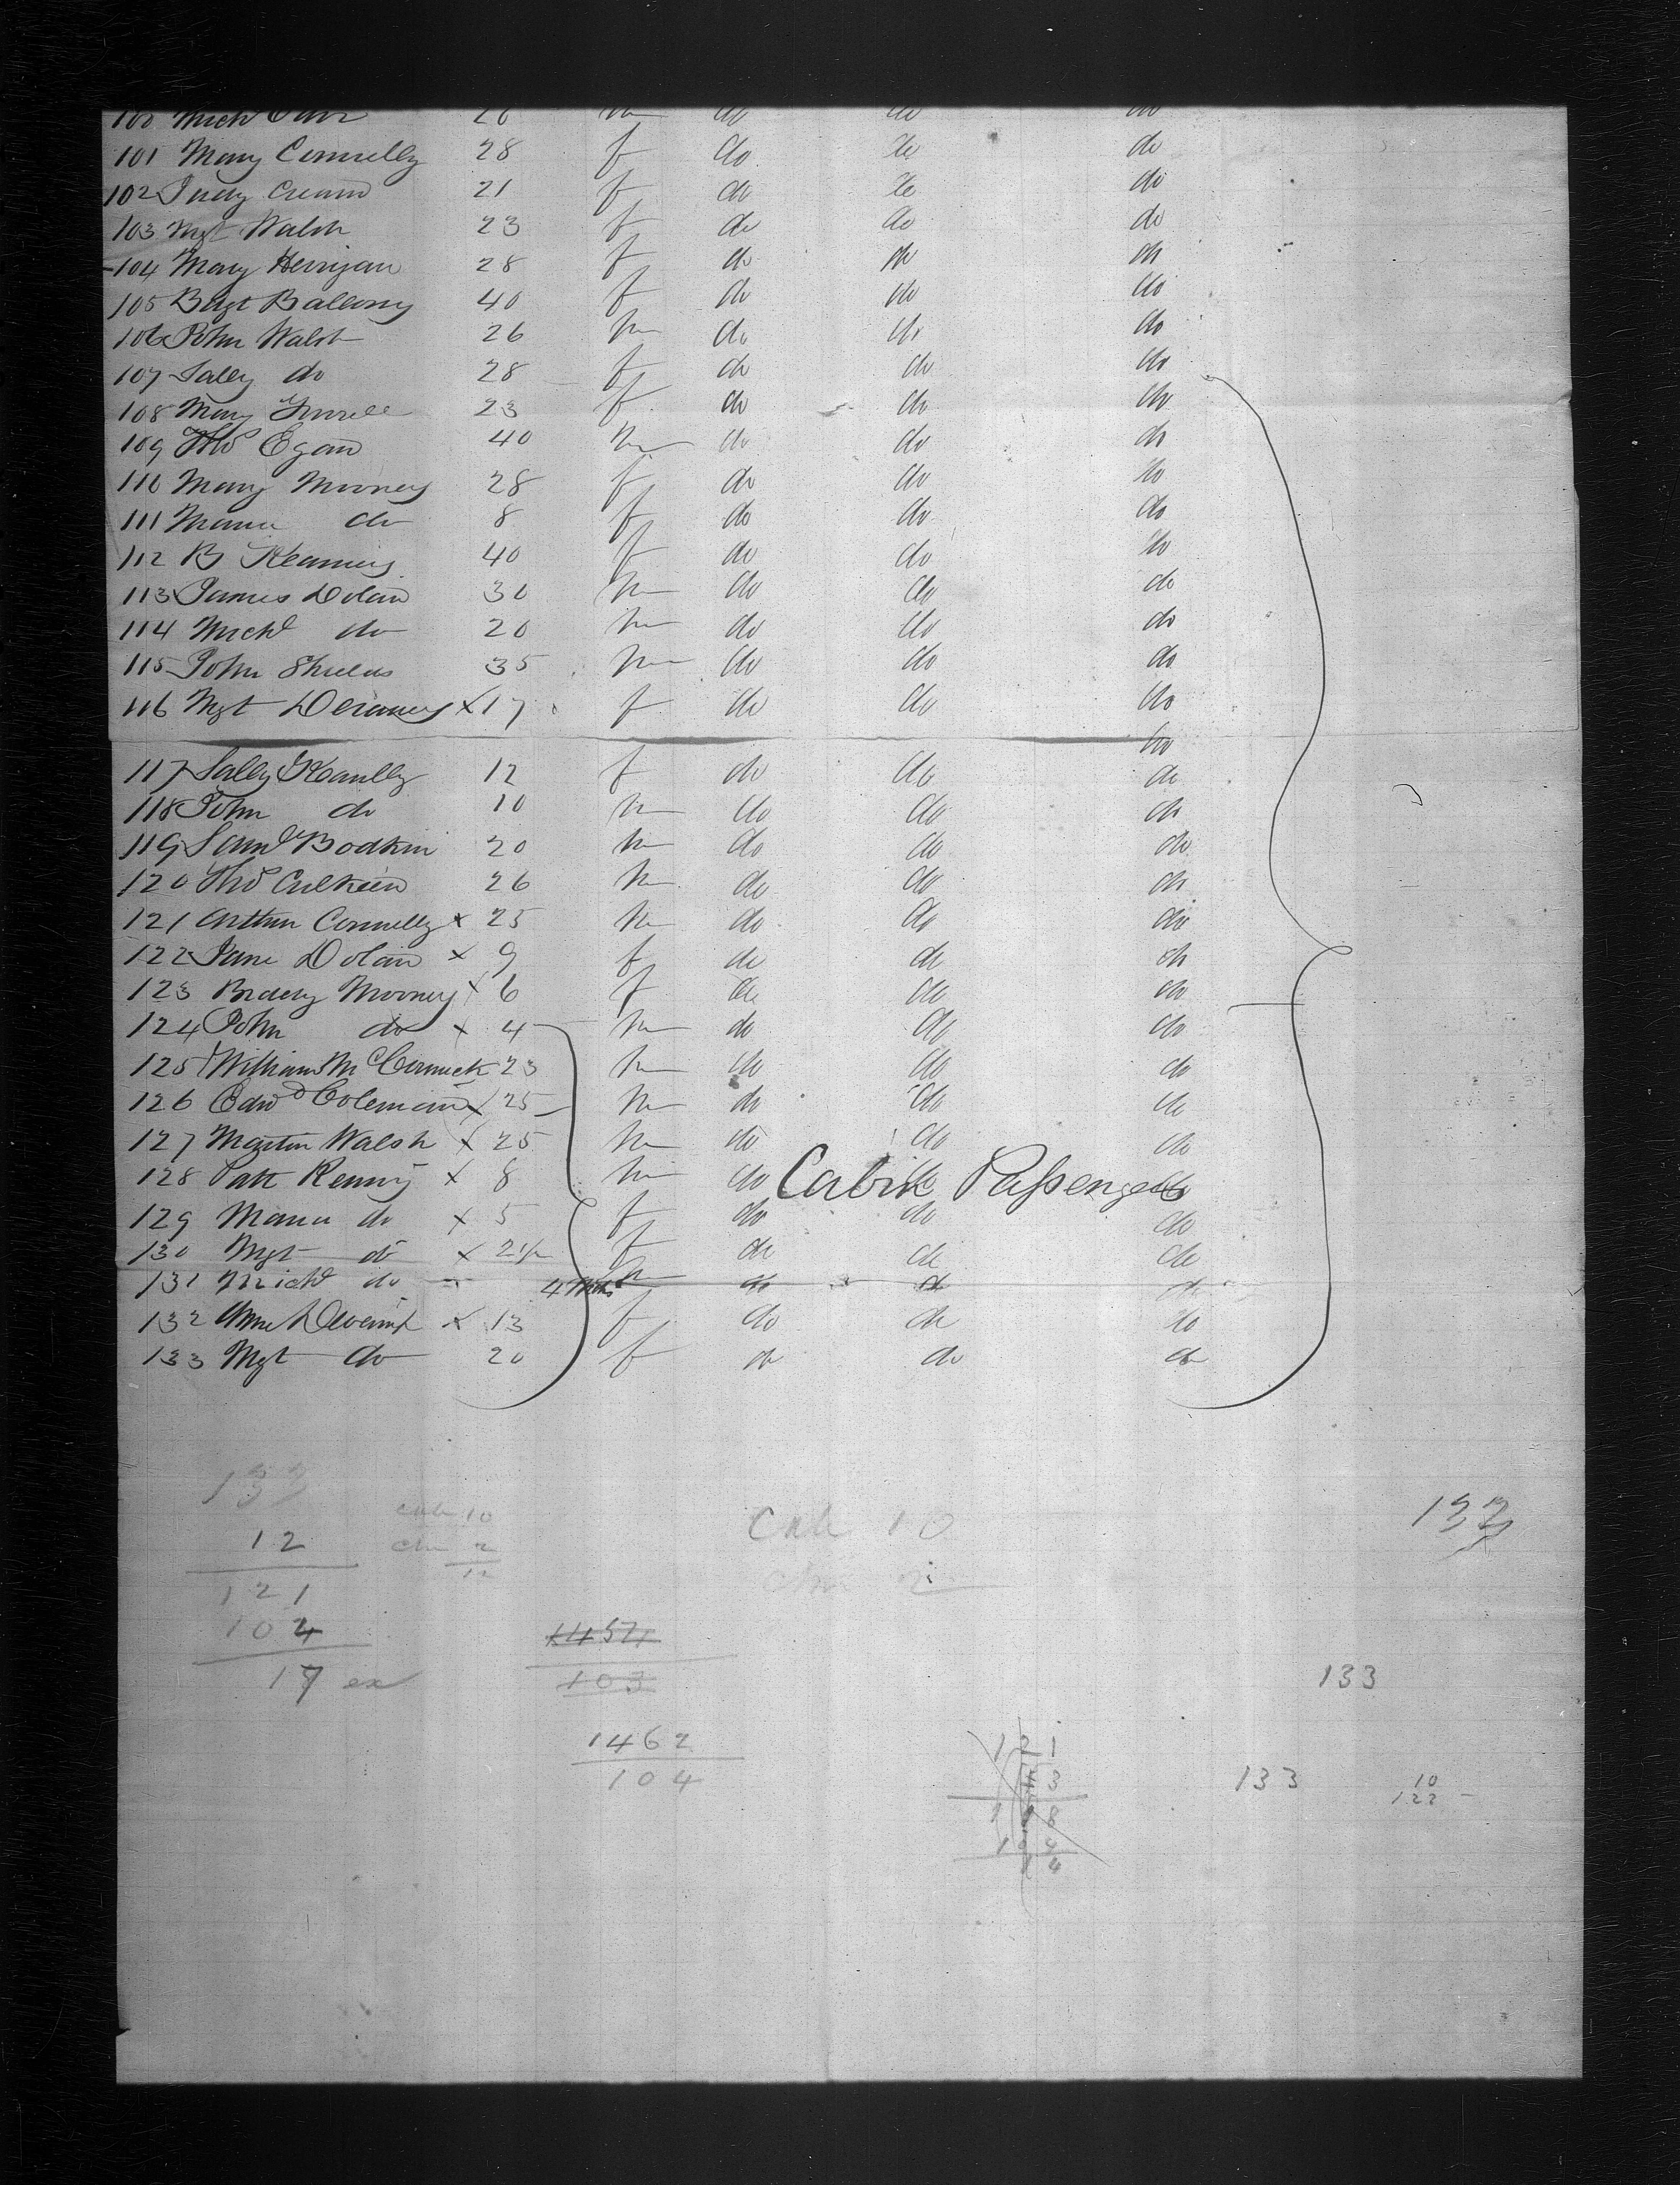 101 Mary Connelly 28 f do do do
102 Judy Crean 21 f do do do
103 Mgt Walsh 23 f do do do
104 Mary Herrigan 28 f do do do
105 Bdgt 40 f do do do
106 John Walsh 26 m do do do
107 Sally do 28 f do do do
108 Mary 23 f do do do
109 Thos Egan 40 m do do do
110 Mary Mooney 28 f do do do
111 Maria do 8 f do do do
112 B Kearney 40 f do do do
113 James Dolan 30 m do do do
114 Michl do 20 m do do do
115 John Shields 35 m do do do
116 Mgt x 17 f do do do
do
117 Sally 12 f do do do
118 John do 10 m do do do
119 Saml Bodkin 20 m do do do
120 Thos Culkeen 26 m do do do
121 Arthur Connelly x 25 m do do do
122 Jane Dolan x 9 f do do do
123 Mooney x 6 f do do do
124 John do x 4 m do do do
125 William McCormick 23 m do do do
126 Edwd Coleman x 25 m do do do
127 Martin Walsh x 25 m do do do
128 Patt Kenny x 8 m do do do
Cabin Passengers
129 Maria do x 5 f do do do
130 Mgt do x 2½ f do do do
131 Michl do 4 Mths m do do do
132 Anne x 13 f do do do
133 Mgt do 20 f do do do
133
12
121
104
17 ex
cab 10
chn 2
12
Cab 10
chn 2
133
1454
103
1462
104
133
133
10
122